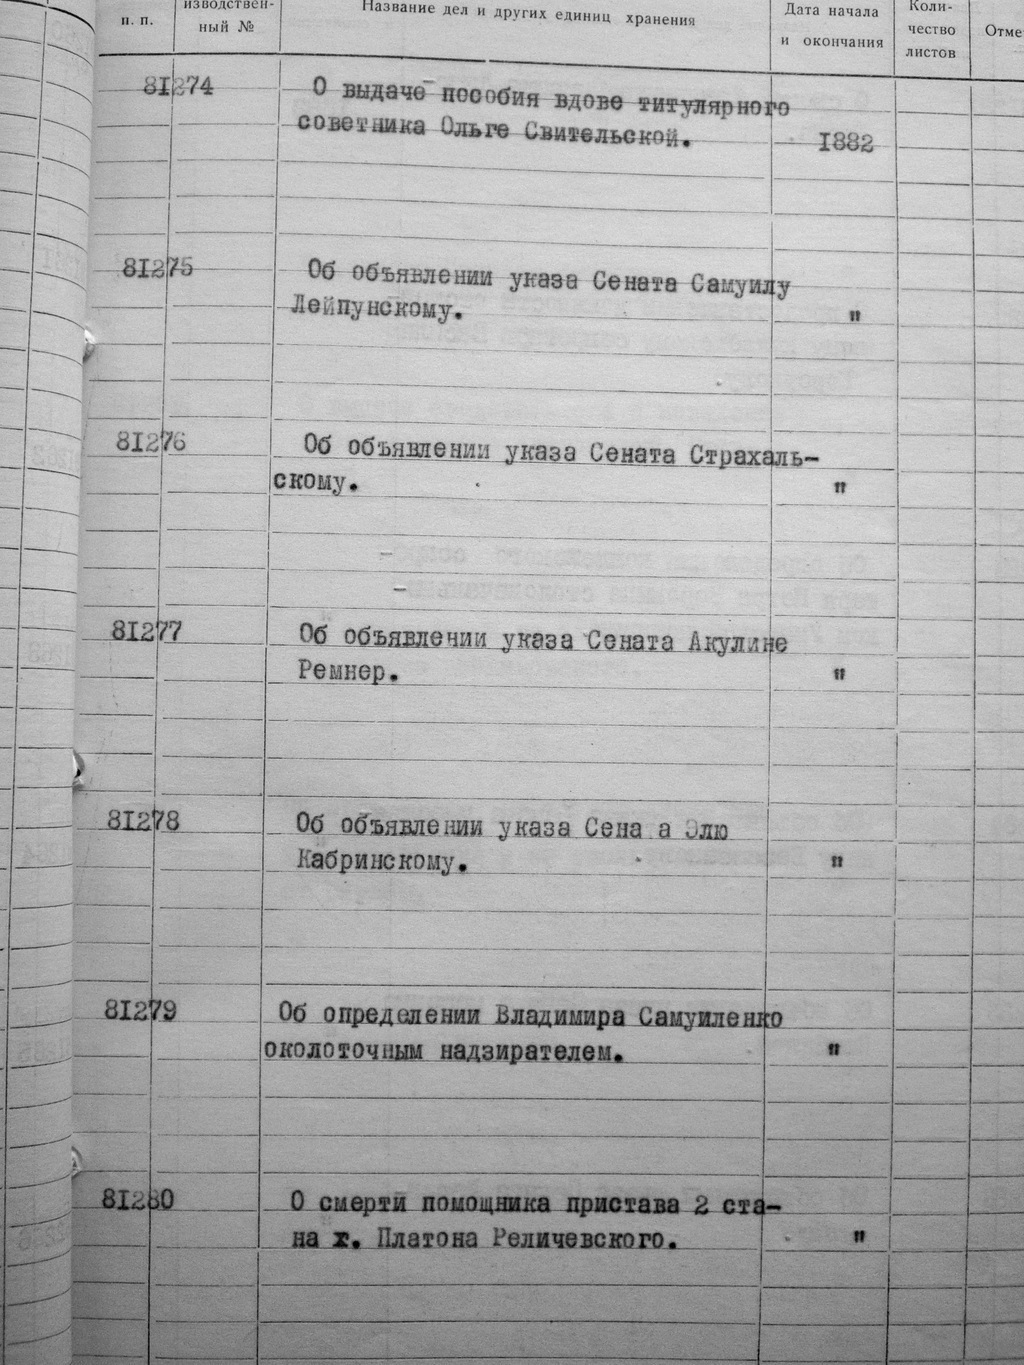 п. п.
изводствен-
ный №
Название дел и других единиц хранения
Дата начала
и окончания
Коли-
чество
листов
Отме
81274
О выдаче пособия вдове титулярного
советника Ольге Свительской.
1882
81275
Об объявлении указа Сената Самуилу
Лейпунскому.
"
81276
Об объявлении указа Сената Страхаль-
скому.
"
81277
Об объявлении указа Сената Акулине
Ремнер.
"
81278
Об объявлении указа Сена а Элю
Кабринскому.
"
81279
Об определении Владимира Самуиленко
околоточным надзирателем.
"
81280
О смерти помощника пристава 2 ста-
на г. Платона Реличевского.
"